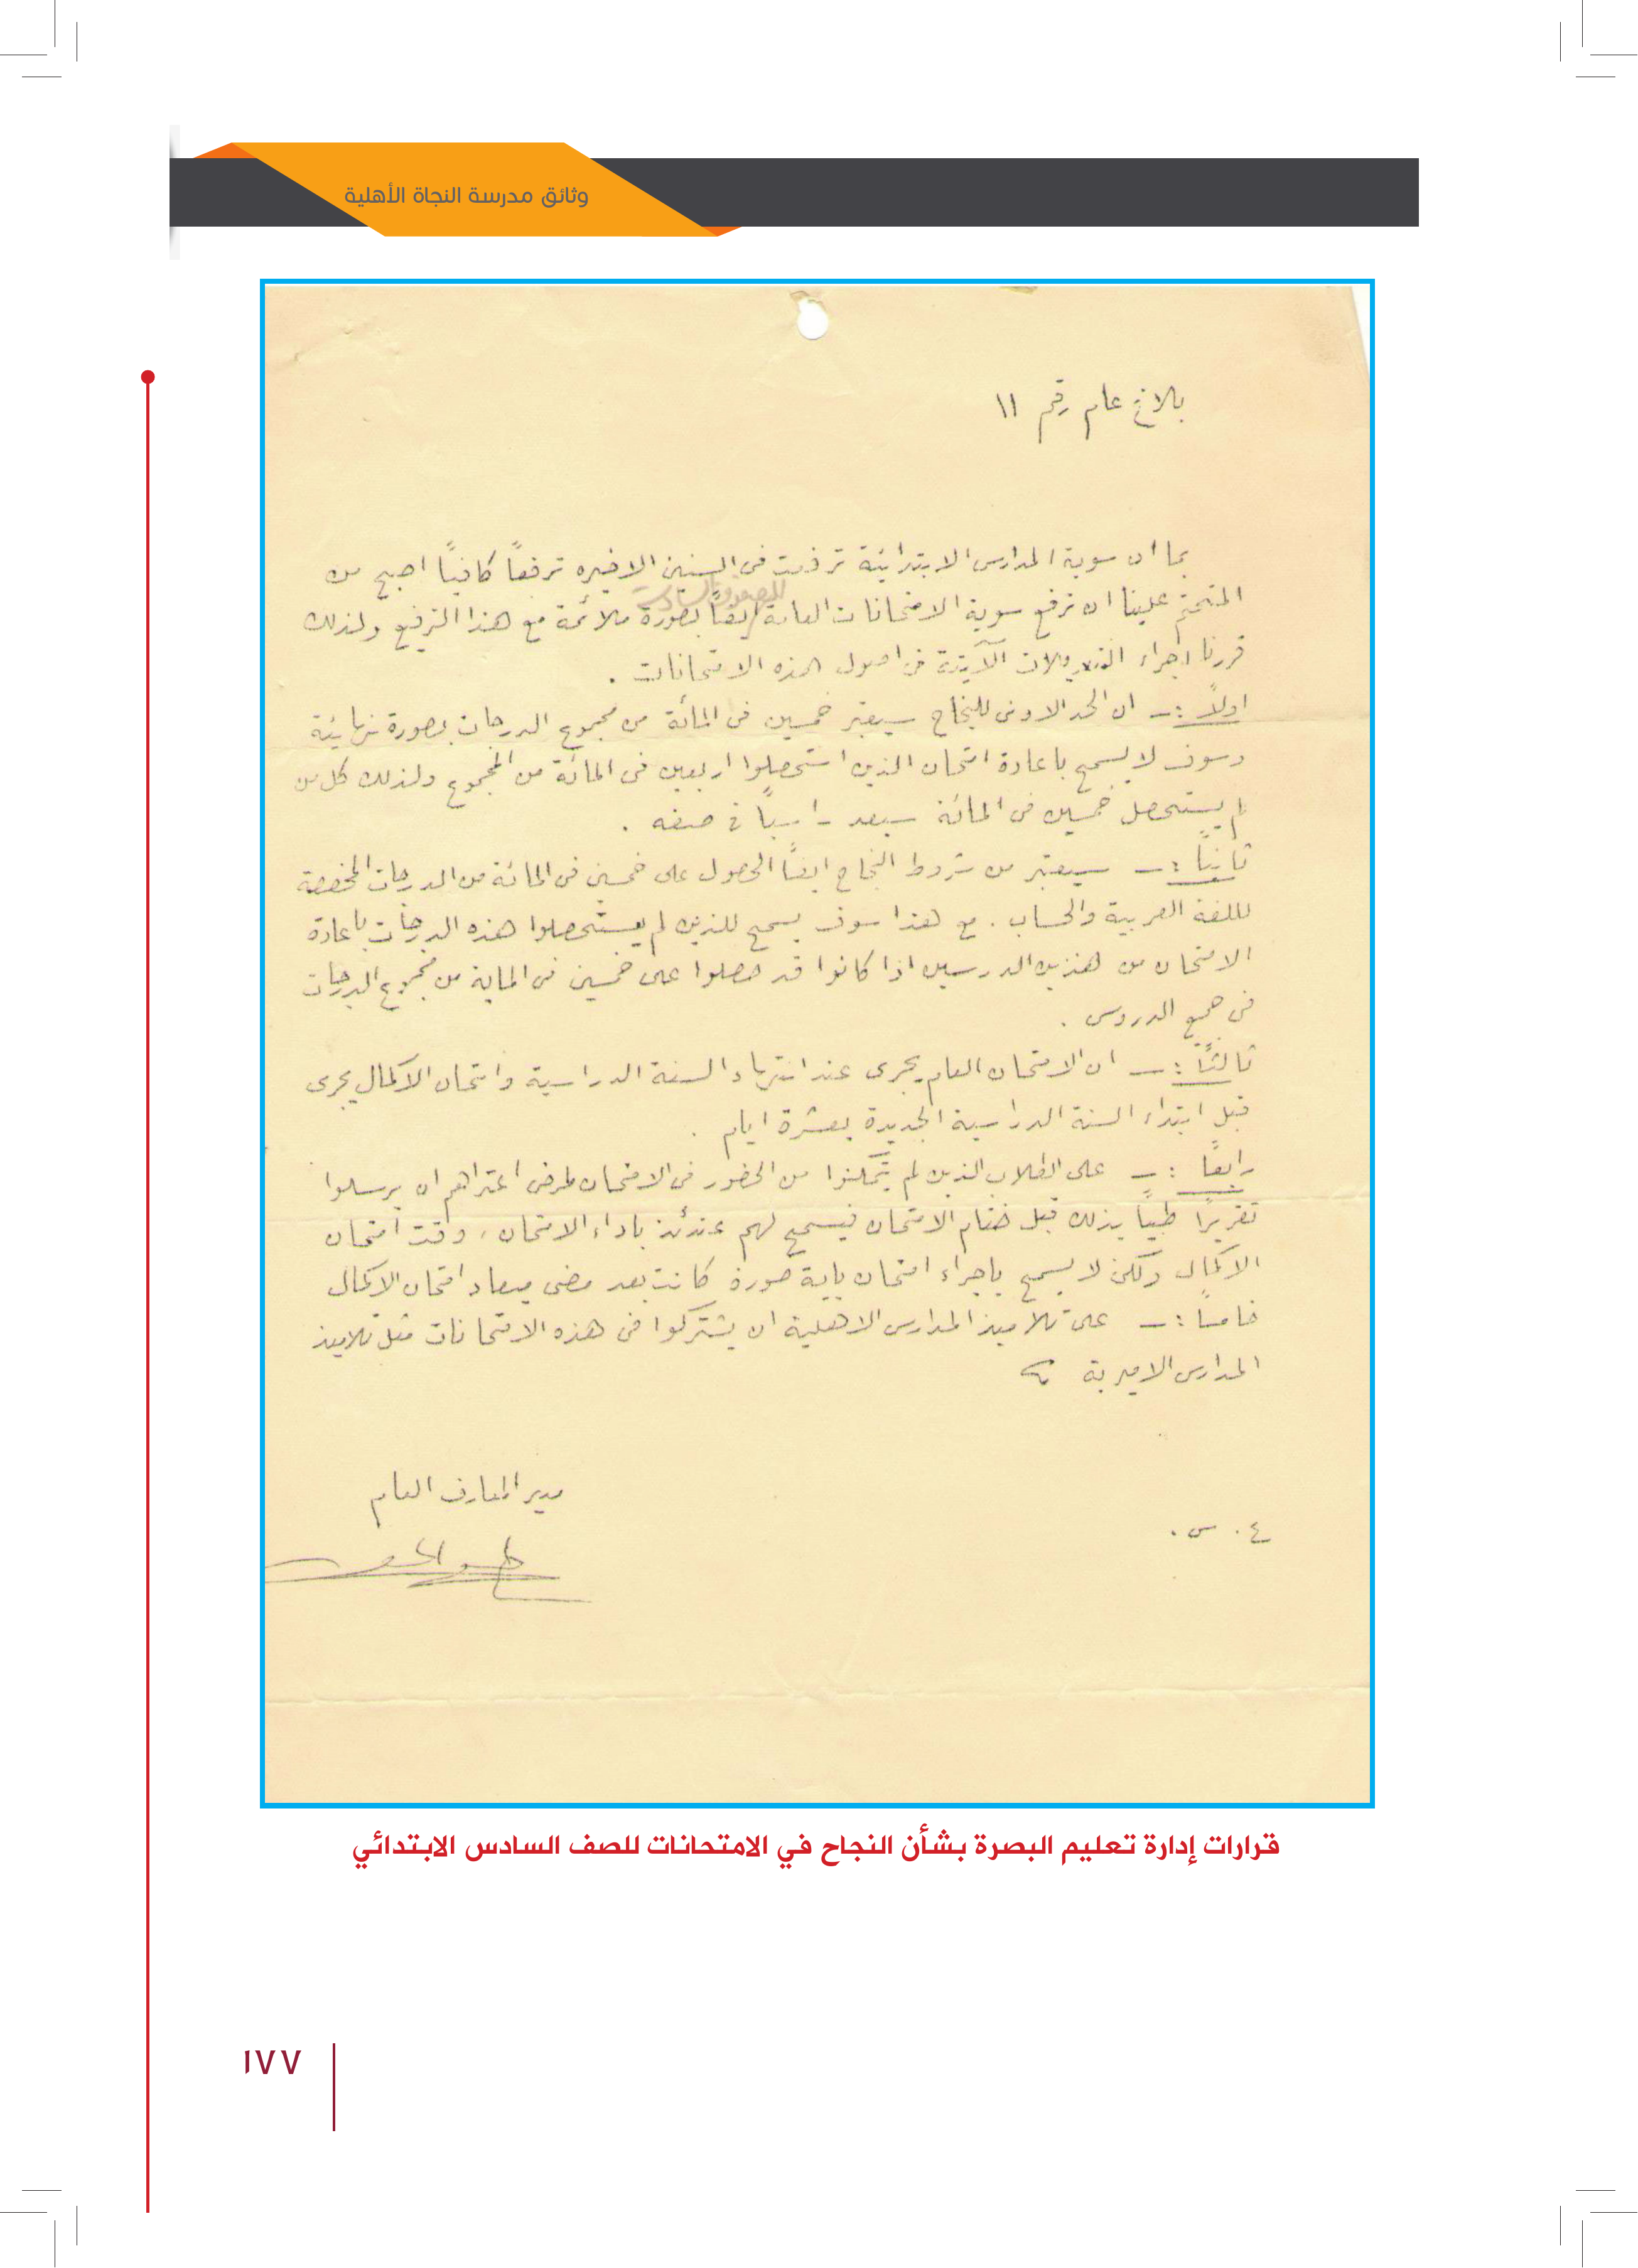 وثائق مدرسة النجاة الأهلية
بلاغ عام رقم ١١
بما ان سوية المدارس الابتدائية ترفعت فى السنين الاخيره ترفعاً كافياً اصبح من
للصفوف السادسة
المتحتم علينا ان نرفع سوية الامتحانات العامة ايضاً بصورة ملائمة مع هذا الترفيع ولذلك
قررنا اجراء التعديلات الآتية فى اصول هذه الامتحانات .
اولاً :ـ ان الحد الادنى للنجاح سيعتبر خمسين فى المائة من مجموع الدرجات بصورة نهائية
وسوف لا يسمح باعادة امتحان الذين استحصلوا اربعين فى المائة من المجموع ولذلك كل من
لم يستحصل خمسين فى المائة سيعد راسباً فى صفه .
ثانياً :ـ سيعتبر من شروط النجاح ايضاً الحصول على خمسين فى المائة من الدرجات المخصصة
للغة العربية والحساب . مع هذا سوف يسمح للذين لم يستحصلوا هذه الدرجات باعادة
الامتحان من هذين الدرسين اذا كانوا قد حصلوا على خمسين فى الماية من مجموع الدرجات
فى جميع الدروس .
ثالثاً :ـ ان الامتحان العام يجرى عند انتهاء السنة الدراسية وامتحان الاكمال يجرى
قبل ابتداء السنة الدراسية الجديدة بعشرة ايام .
رابعاً :ـ على الطلاب الذين لم يتمكنوا من الحضور فى الامتحان لمرض اعتراهم ان يرسلوا
تقريراً طبياً بذلك قبل ختام الامتحان فيسمح لهم عندئذ باداء الامتحان ، وقت امتحان
الاكمال ولكن لا يسمح باجراء امتحان باية صورة كانت بعد مضى ميعاد امتحان الاكمال
خامساً :ـ على تلاميذ المدارس الاهلية ان يشتركوا فى هذه الامتحانات مثل تلاميذ
المدارس الاميرية
مدير المعارف العام
ع . س .
قرارات إدارة تعليم البصرة بشأن النجاح في الامتحانات للصف السادس الابتدائي
١٧٧